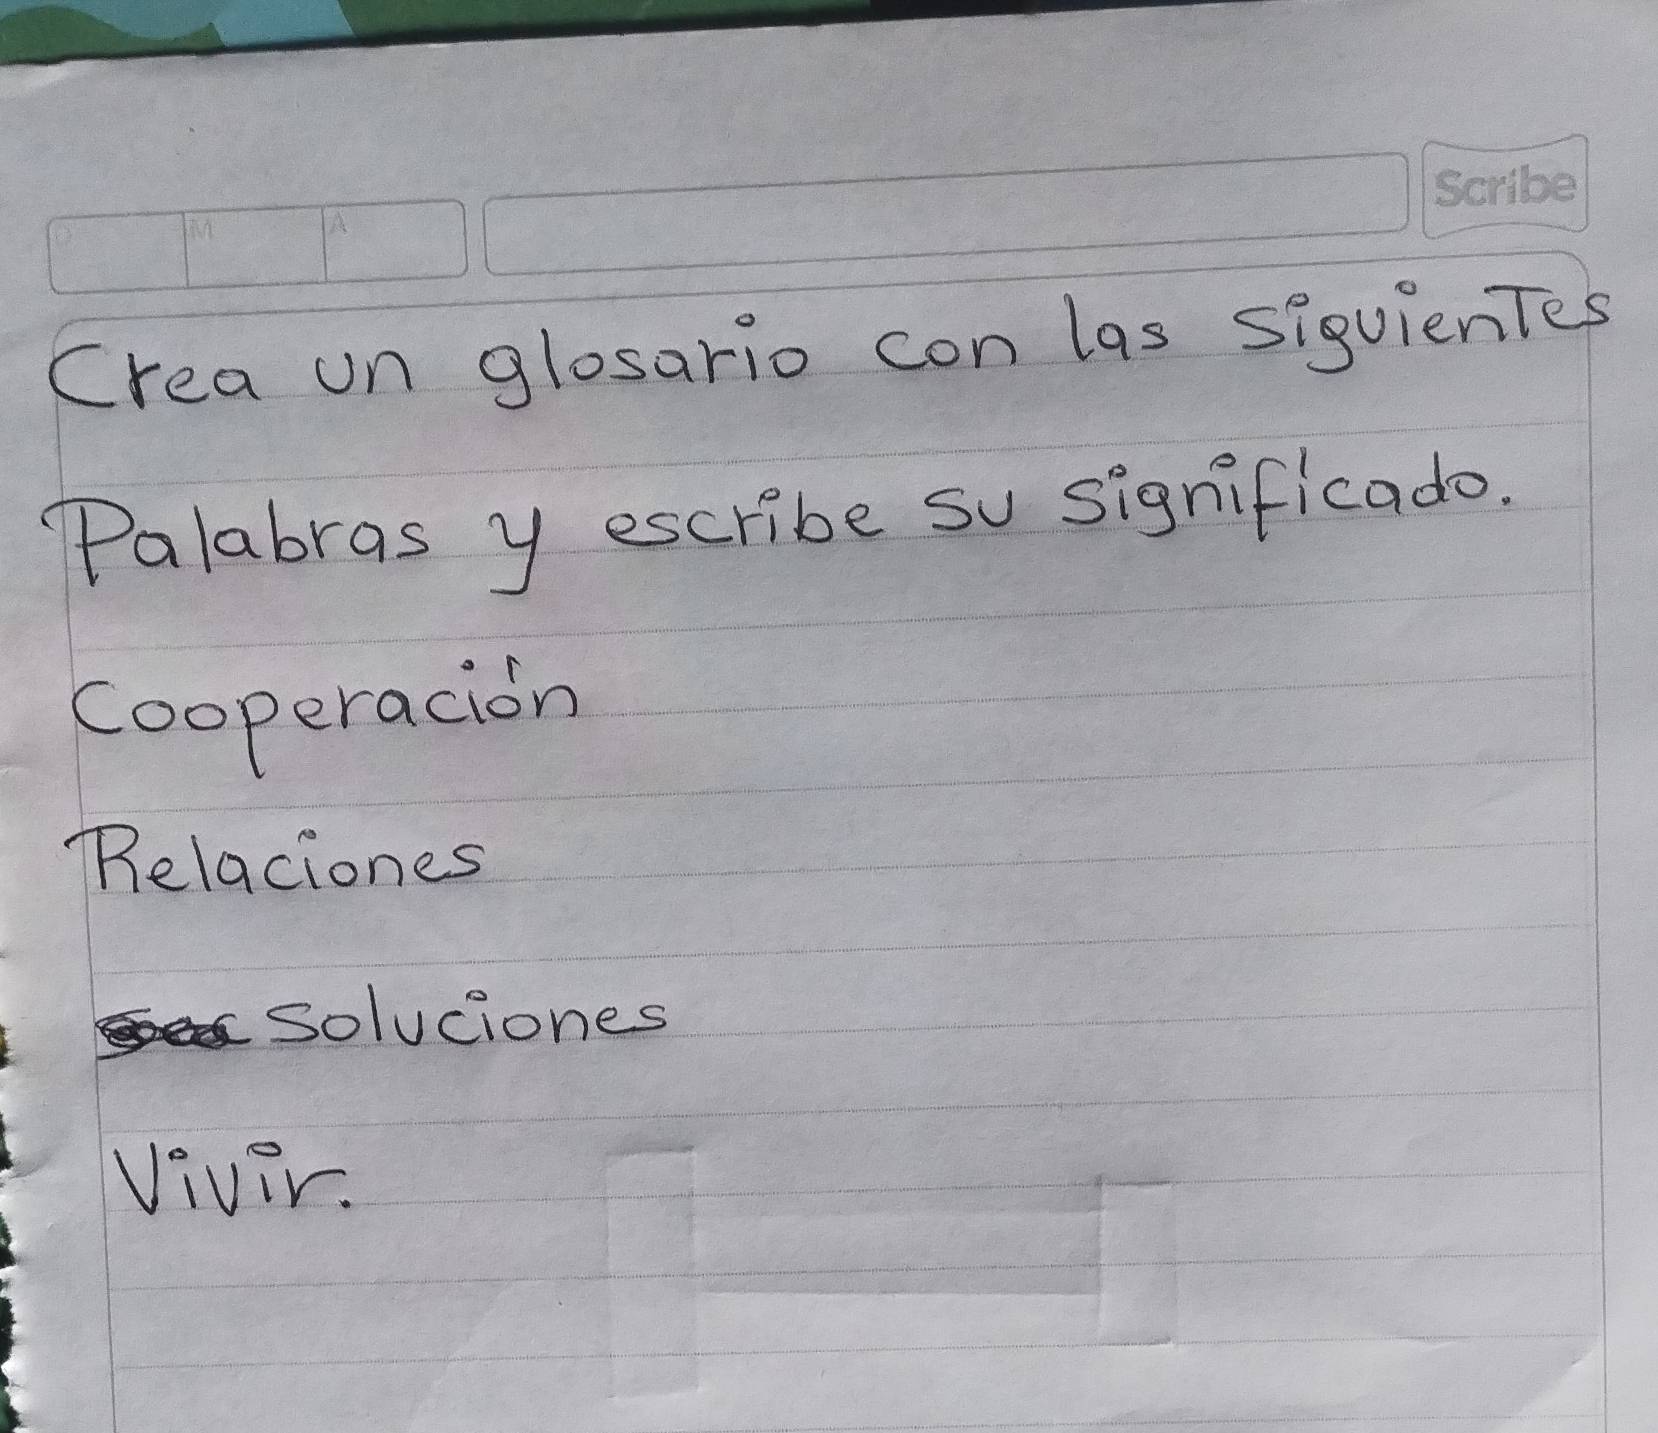 Scribe
D M A
Crea un glosario con las siguientes
Palabras y escribe su significado.
Cooperación
Relaciones
soluciones
Vivir.